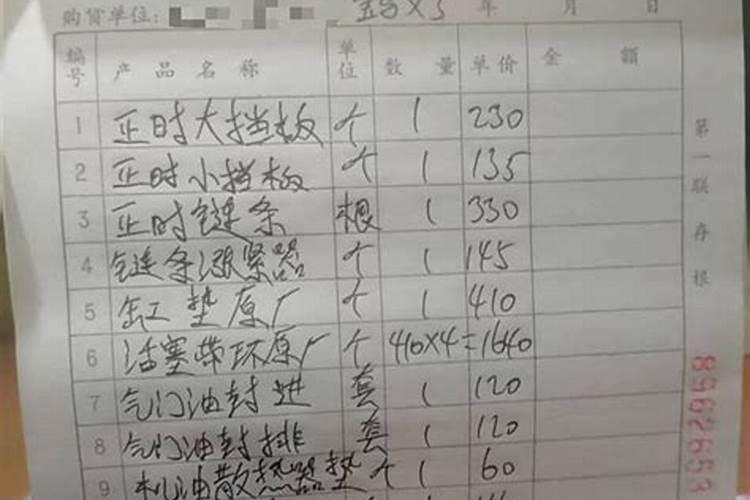 购货单位: 年 月 日
编号 产品名称 单位 数量 单价 金额
1 正时大挡板 个 1 230
2 正时小挡板 个 1 135
3 正时链条 根 1 330
4 链条涨紧器 个 1 145
5 缸垫原厂 个 1 410
6 活塞带环原厂 个 410×4=1640
7 气门油封进 套 1 120
8 气门油封排 套 1 120
9 机油散热器垫 个 1 60
第一联存根
8962653